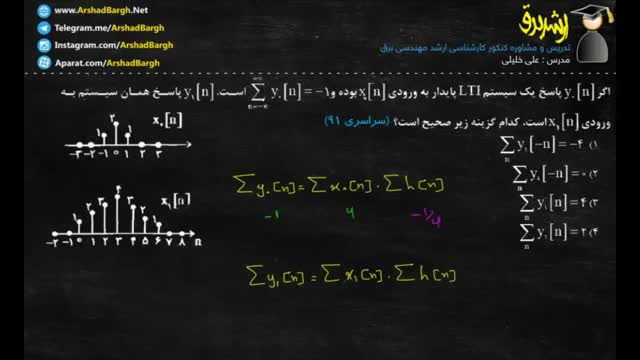 www.ArshadBargh.Net
Telegram.me/ArshadBargh
Instagram.com/ArshadBargh
Aparat.com/ArshadBargh
ارشد برق
تدریس و مشاوره کنکور کارشناسی ارشد مهندسی برق
مدرس : علی خلیلی
اگر y₀[n] پاسخ یک سیستم LTI پایدار به ورودی x₀[n] بوده و ∑_{n=-∞}^{+∞} y₀[n] = -1 است. y₁[n] پاسخ همان سیستم به
ورودی x₁[n] است، کدام گزینه زیر صحیح است؟ (سراسری ۹۱)
۱) ∑_n y₁[-n] = -۴
۲) ∑_n y₁[-n] = ۰
۳) ∑_n y₁[n] = ۴
۴) ∑_n y₁[n] = ۲
x₀[n]
۲
۱ ۱
-۳ -۲ -۱ ۰ ۱ ۲ ۳
x₁[n]
۴
۳ ۳
۲ ۲
۱ ۱
-۲ -۱ ۰ ۱ ۲ ۳ ۴ ۵ ۶ ۷ ۸ n
∑ y₀[n] = ∑ x₀[n] . ∑ h[n]
-1 4 -1/4
∑ y₁[n] = ∑ x₁[n] . ∑ h[n]